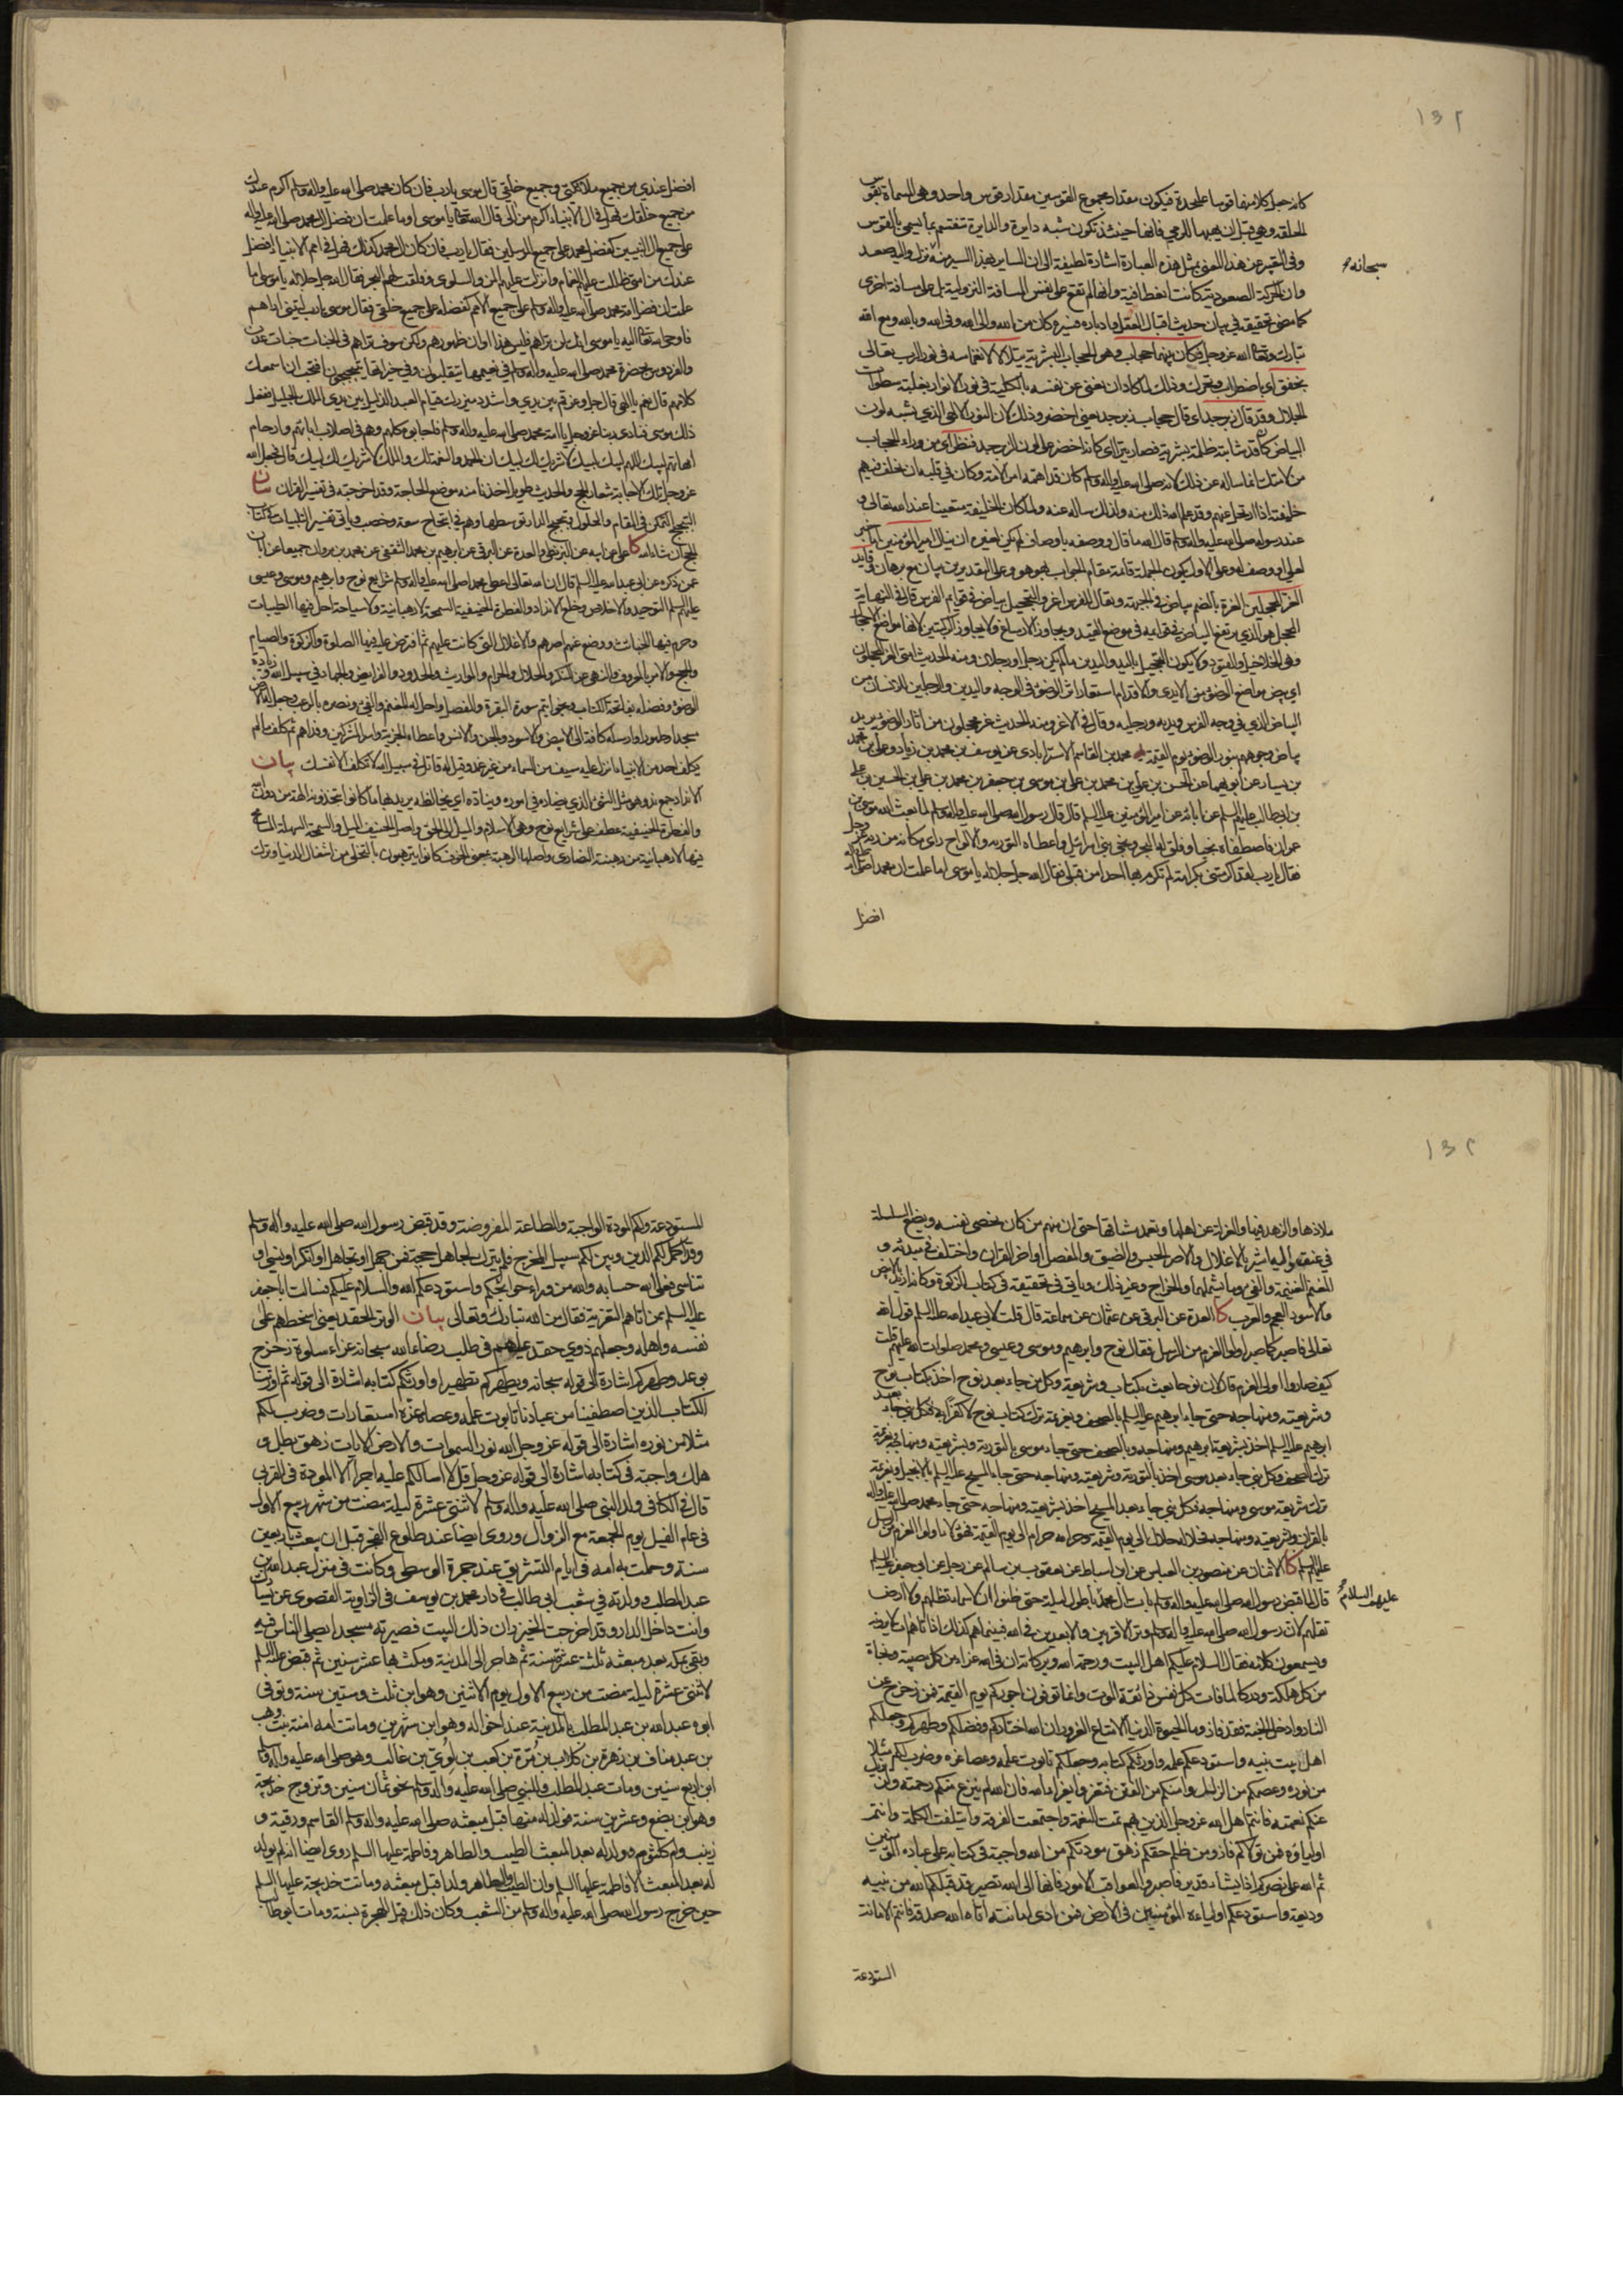 ١٣٢
كانه جعل كلا منهما قوسا على حدة فيكون مقدار مجموع القوسين مقدار قوس واحد وهي المسماة بقوس
الحلقة وهي قبل ان يهيأ للرمي فانها حينئذ تكون شبه دايرة والدايرة تنقسم بما يسمى بالقوس
وفي التعبير عن هذا المعنى بمثل هذه العبارة اشارة لطيفة الى ان الساير بهذا السير منه نزل واليه صعد
سبحانه
وان الحركة الصعودية كانت انعطافية وانها لم تقع على نفس المسافة النزولية بل على مسافة اخرى
كما مضى تحقيقه في بيان حديث اقبال العقل وادباره فسيره كان من الله والى الله وفي الله وبالله ومع الله
تبارك وتعالى الله عز وجل فكان بينهما حجاب وهو الحجاب البشرية يتلألأ لانغماسه في نور الرب تعالى
بخفق اي باضطراب وتحرك وذلك لما كاد ان يفنى عن نفسه بالكلية في نور الانوار بغلبة سطوات
الجلال وقد قال زبرجد اي قال حجاب زبرجد يعني اخضر وذلك لان النور الالهي الذي يشبه لون
البياض كان قد شابته ظلمة بشرية فصار يتراءى كانه اخضر على لون الزبرجد فنظر اي من وراء الحجاب
من لامتك انما ساله عن ذلك لانه صلى الله عليه واله وسلم كان قد اهمه امر الامة وكان في قلبه ان يخلف فيهم
خليفة اذا ارتحل عنهم وقد علم الله ذلك منه ولذلك ساله عنه ولما كان الخليفة متعينا عند الله تعالى و
عند رسوله صلى الله عليه واله وسلم قال الله ما قال ووصفه باوصاف لم يكن لغيره ان ينال امير المؤمنين اما خبر
لعلي او وصف له وعلى الاول يكون الجملة قائمة مقام الجواب بهو هو وعلى التقديرين بيان مع برهان قايد
الغر المحجلين الغرة بالضم بياض في الجبهة ويقال للفرس اغر والتحجيل بياض في قوايم الفرس قال في النهاية
المحجل هو الذي يرتفع البياض في قوايمه في موضع القيد ويجاوز الارساغ ولا يجاوز الركبتين لانها مواضع الاحجال
وهي الخلاخيل والقيود ولا يكون التحجيل باليد واليدين ما لم يكن رجل او رجلان ومنه الحديث امتي الغر المحجلون
اي بيض مواضع الوضوء من الايدي والاقدام استعار اثر الوضوء في الوجه واليدين والرجلين للانسان من
البياض الذي في وجه الفرس ويديه ورجليه وقال في الاغر ومنه الحديث غر محجلون من اثار الوضوء يريد
بياض وجوههم بنور الوضوء يوم القيمة محمد بن القاسم الاسترابادي عن يوسف بن محمد بن زياد وعلي بن محمد
بن سيار عن ابويهما عن الحسن بن علي بن محمد بن علي بن موسى بن جعفر بن محمد بن علي بن الحسين بن علي
بن ابي طالب عليهم السلم عن ابائه عن امير المؤمنين عليه السلم قال قال رسول الله صلى الله عليه واله وسلم لما بعث الله موسى بن
عمران فاصطفاه نجيا وفلق له البحر ونجى بني اسرائيل واعطاه التورية والالواح راى مكانه من ربه عز وجل
فقال يا رب لقد اكرمتني بكرامة لم تكرم بها احدا من قبلي فقال الله جل جلاله يا موسى اما علمت ان محمدا صلى الله عليه واله
افضل
افضل عندي من جميع ملائكتي وجميع خلقي قال موسى يا رب فان كان محمد صلى الله عليه واله وسلم اكرم عندك
من جميع خلقك فهل في ال الانبياء اكرم من الي قال الله تعالى يا موسى اوما علمت ان فضل ال محمد صلى الله عليه واله
على جميع ال النبيين كفضل محمد على جميع المرسلين فقال يا رب فان كان ال محمد كذلك فهل في امم الانبياء افضل
عندك من امتي ظللت عليهم الغمام وانزلت عليهم المن والسلوى وفلقت لهم البحر فقال الله جل جلاله يا موسى اما
علمت ان فضل امة محمد صلى الله عليه واله وسلم على جميع الامم كفضله على جميع خلقي فقال موسى يا رب ليتني اراهم
فاوحى الله تعالى اليه يا موسى انك لن تراهم فليس هذا اوان ظهورهم ولكن سوف تراهم في الجنات جنات عدن
والفردوس بحضرة محمد صلى الله عليه واله وسلم في نعيمها يتقلبون وفي خيراتها يتبحبحون افتحب ان اسمعك
كلامهم قال نعم يا الهي قال جل وعز قم بين يدي واشدد ميزرك قيام العبد الذليل بين يدي الملك الجليل ففعل
ذلك موسى فنادى ربنا عز وجل يا امة محمد صلى الله عليه واله وسلم فاجابوه كلهم وهم في اصلاب ابائهم وارحام
امهاتهم لبيك اللهم لبيك لبيك لا شريك لك لبيك ان الحمد والنعمة لك والملك لا شريك لك لبيك قال فجعل الله
عز وجل تلك الاجابة شعار الحج والحديث طويل اخذنا منه موضع الحاجة وقد اخرجته في تفسير القران بيان
التبحبح التمكن في المقام والحلول وتبحبح الدار توسطها وهم في ابتحاح سعة وخصب وياتي تفسير التلبيات في كتاب
الحج ان شاء الله كا علي عن ابيه عن البزنطي والعدة عن البرقي عن ابرهيم بن محمد الثقفي عن محمد بن مروان جميعا عن ابان
عمن ذكره عن ابي عبد الله عليه السلم قال ان الله تعالى اعطى محمدا صلى الله عليه واله وسلم شرايع نوح وابرهيم وموسى وعيسى
عليهم السلم التوحيد والاخلاص وخلع الانداد والفطرة الحنيفية السمحة لا رهبانية ولا سياحة احل فيها الطيبات
وحرم فيها الخبائث ووضع عنهم اصرهم والاغلال التي كانت عليهم ثم افترض عليه فيها الصلوة والزكوة والصيام
والحج والامر بالمعروف والنهي عن المنكر والحلال والحرام والمواريث والحدود والفرايض والجهاد في سبيل الله وزاده
الوضوء وفضله بفاتحة الكتاب وبخواتيم سورة البقرة والمفصل واحل له المغنم والفيء ونصره بالرعب وجعل له الارض
مسجدا وطهورا وارسله كافة الى الابيض والاسود والجن والانس واعطاه الجزية واسر المشركين وفداهم ثم كلف ما لم
يكلف احد من الانبياء انزل عليه سيف من السماء من غير غمد وقيل له قاتل في سبيل الله لا تكلف الا نفسك بيان
الانداد جمع ند وهو مثل الشيء الذي يضاده في اموره ويناده اي يخالفه يريد بها ما كانوا يتخذونه الهة من دون الله
والفطرة الحنيفية عطف على شرايع نوح وهي الاسلام والميل الى الحق واصل الحنيف الميل والسمحة السهلة السماح
فيها لا رهبانية من رهبنة النصارى واصلها الرهبة بمعنى الخوف كانوا يترهبون بالتخلي من اشغال الدنيا وترك
١٣٢
ملاذها والزهد فيها والعزلة عن اهلها وتعمد مشاقها حتى ان منهم من كان يخصي نفسه ويضع السلسلة
في عنقه واليه اشير بالاغلال والاصر الحبس والضيق والمفصل اواخر القران واختلف في مبدئه و
المغنم الغنيمة والفيء وما يشملهما والخراج وغير ذلك وياتي في تحقيقه في كتاب الزكوة وكانه اريد بالابيض
والاسود العجم والعرب كا العدة عن البرقي عن عثمان عن سماعة قال قلت لابي عبد الله عليه السلم قول الله
تعالى فاصبر كما صبر اولوا العزم من الرسل فقال نوح وابرهيم وموسى وعيسى ومحمد صلوات الله عليهم قلت
كيف صاروا اولي العزم قال لان نوحا بعث بكتاب وشريعة وكل من جاء بعد نوح اخذ بكتاب نوح
وشريعته ومنهاجه حتى جاء ابرهيم عليه السلم بالصحف وبعزيمة ترك كتاب نوح لا كفرا به فكل نبي جاء بعد
ابرهيم عليه السلم اخذ بشريعة ابرهيم ومنهاجه وبالصحف حتى جاء موسى بالتورية وبشريعته ومنهاجه وبعزيمة
ترك الصحف وكل نبي جاء بعد موسى اخذ بالتورية وشريعته ومنهاجه حتى جاء المسيح عليه السلم بالانجيل وبعزيمة
ترك شريعة موسى ومنهاجه فكل نبي جاء بعد المسيح اخذ بشريعته ومنهاجه حتى جاء محمد صلى الله عليه واله
بالقران وشريعته ومنهاجه فحلاله حلال الى يوم القيمة وحرامه حرام الى يوم القيمة فهؤلاء اولوا العزم من الرسل
عليهم السلم كا الاثنان عن منصور بن العباس عن ابن اسباط عن يعقوب بن سالم عن رجل عن ابي جعفر عليه السلم
عليهم السلام
قال لما قبض رسول الله صلى الله عليه واله وسلم بات ال محمد باطول ليلة حتى ظنوا ان لا سماء تظلهم ولا ارض
تقلهم لان رسول الله صلى الله عليه واله وسلم وتر الاقربين والابعدين في الله فبينما هم كذلك اذ اتاهم ات لا يرونه
ويسمعون كلامه فقال السلام عليكم اهل البيت ورحمة الله وبركاته ان في الله عزاء من كل مصيبة ونجاة
من كل هلكة ودركا لما فات كل نفس ذائقة الموت وانما توفون اجوركم يوم القيمة فمن زحزح عن
النار وادخل الجنة فقد فاز وما الحيوة الدنيا الا متاع الغرور ان الله اختاركم وفضلكم وطهركم وجعلكم
اهل بيت نبيه واستودعكم علمه واورثكم كتابه وجعلكم تابوت علمه وعصا عزه وضرب لكم مثلا
من نوره وعصمكم من الزلل وامنكم من الفتن فتعزوا بعزاء الله فان الله لم ينزع منكم رحمته ولن يزيل
عنكم نعمته فانتم اهل الله عز وجل الذين بهم تمت النعمة واجتمعت الفرقة وايتلفت الكلمة وانتم
اولياؤه فمن تولاكم فاز ومن ظلم حقكم زهق مودتكم من الله واجبة في كتابه على عباده المؤمنين
ثم الله على نصركم اذا يشاء قدير فاصبروا لعواقب الامور فانها الى الله تصير قد قبلكم الله من نبيه
وديعة واستودعكم اولياءه المؤمنين في الارض فمن ادى امانته اتاه الله صدقه فانتم الامانة
المستودعة
المستودعة ولكم المودة الواجبة والطاعة المفروضة وقد قبض رسول الله صلى الله عليه واله وسلم
وقد اكمل لكم الدين وبين لكم سبيل المخرج فلم يترك لجاهل حجة فمن جهل او تجاهل او انكر او نسي او
تناسى فعلى الله حسابه والله من وراء حوائجكم واستودعكم الله والسلام عليكم فسالت ابا جعفر
عليه السلم ممن اتاهم التعزية فقال من الله تبارك وتعالى بيان الوتر الحقد يعني اسخطهم على
نفسه واهله وجعلهم ذوي حقد عليهم في طلب رضاء الله سبحانه عزاء سلوة زحزح
بوعد وطهركم اشارة الى قوله سبحانه ويطهركم تطهيرا واورثكم كتابه اشارة الى قوله ثم اورثنا
الكتاب الذين اصطفينا من عبادنا تابوت علمه وعصا عزه استعارات وضرب لكم
مثلا من نوره اشارة الى قوله عز وجل الله نور السموات والارض الايات زهق بطل و
هلك واجبة في كتابه اشارة الى قوله عز وجل قل لا اسالكم عليه اجرا الا المودة في القربى
قال في الكافي ولد النبي صلى الله عليه واله وسلم لاثنتي عشرة ليلة مضت من شهر ربيع الاول
في عام الفيل يوم الجمعة مع الزوال وروي ايضا عند طلوع الفجر قبل ان يبعث باربعين
سنة وحملت به امه في ايام التشريق عند جمرة الوسطى وكانت في منزل عبد الله بن
عبد المطلب وولدته في شعب ابي طالب في دار محمد بن يوسف في الزاوية القصوى عن يسارك
وانت داخل الدار وقد اخرجت الخيزران ذلك البيت فصيرته مسجدا يصلي الناس فيه
وبقي بمكة بعد مبعثه ثلث عشرة سنة ثم هاجر الى المدينة ومكث بها عشر سنين ثم قبض عليه السلم
لاثنتي عشرة ليلة مضت من ربيع الاول يوم الاثنين وهو ابن ثلث وستين سنة وتوفي
ابوه عبد الله بن عبد المطلب بالمدينة عند اخواله وهو ابن شهرين وماتت امه امنة بنت وهب
بن عبد مناف بن زهرة بن كلاب بن مرة بن كعب بن لوي بن غالب وهو صلى الله عليه واله وسلم
ابن اربع سنين ومات عبد المطلب وللنبي صلى الله عليه واله وسلم نحو ثمان سنين وتزوج خديجة
وهو ابن بضع وعشرين سنة فولد له منها قبل مبعثه صلى الله عليه واله وسلم القاسم ورقية و
زينب وام كلثوم وولد له بعد المبعث الطيب والطاهر وفاطمة عليها السلم وروي ايضا انه لم يولد
له بعد المبعث الا فاطمة عليها السلم وان الطيب والطاهر ولدا قبل مبعثه وماتت خديجة عليها السلم
حين خرج رسول الله صلى الله عليه واله وسلم من الشعب وكان ذلك قبل الهجرة بسنة ومات ابو طالب